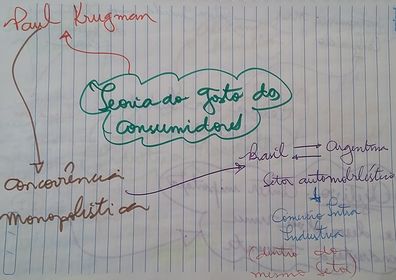 Paul Krugman
Teoria do gosto dos
consumidores
Brasil Argentina
Setor automobilístico
concorrência
monopolística
Comercio Intra
Industria
(dentro do
mesmo setor)